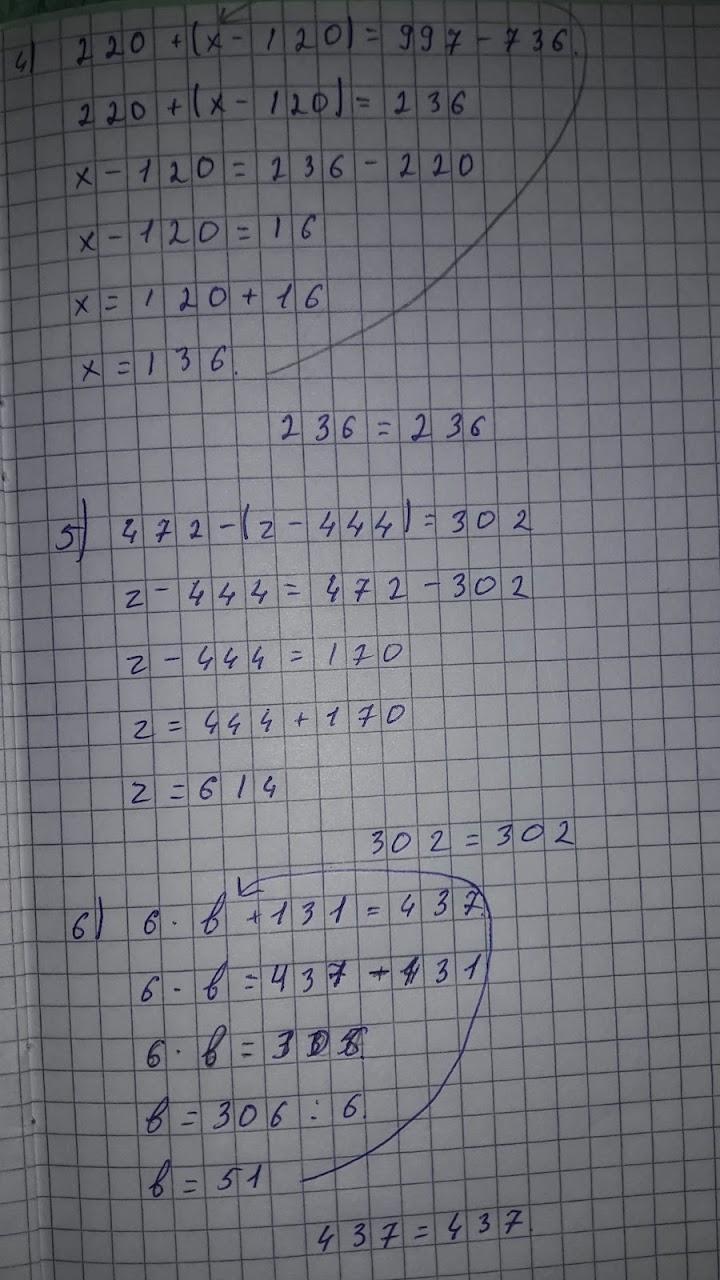 4) 220 + (x - 120) = 997 - 736.
220 + (x - 120) = 236
x - 120 = 236 - 220
x - 120 = 16
x = 120 + 16
x = 136.
236 = 236
5) 472 - (z - 444) = 302
z - 444 = 472 - 302
z - 444 = 170
z = 444 + 170
z = 614
302 = 302
6) 6 · в + 131 = 437.
6 · в = 437 + 131
6 · в = 306.
в = 306 : 6.
в = 51
437 = 437.